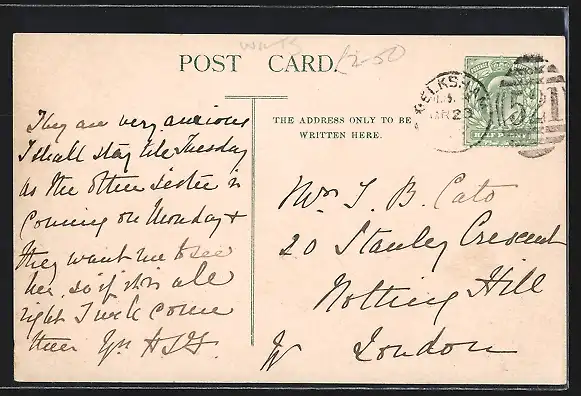 WILTS
£2-50
POST CARD.
MELKSHAM
521
HALFPENNY
THE ADDRESS ONLY TO BE
WRITTEN HERE.
They are very anxious
I shall stay till Tuesday
as the other sister is
coming on Monday &
they want me to see
her, so if it is all
right I will come
then. Yrs
Mrs J. B. Cato
20 Stanley Crescent
Notting Hill
W London